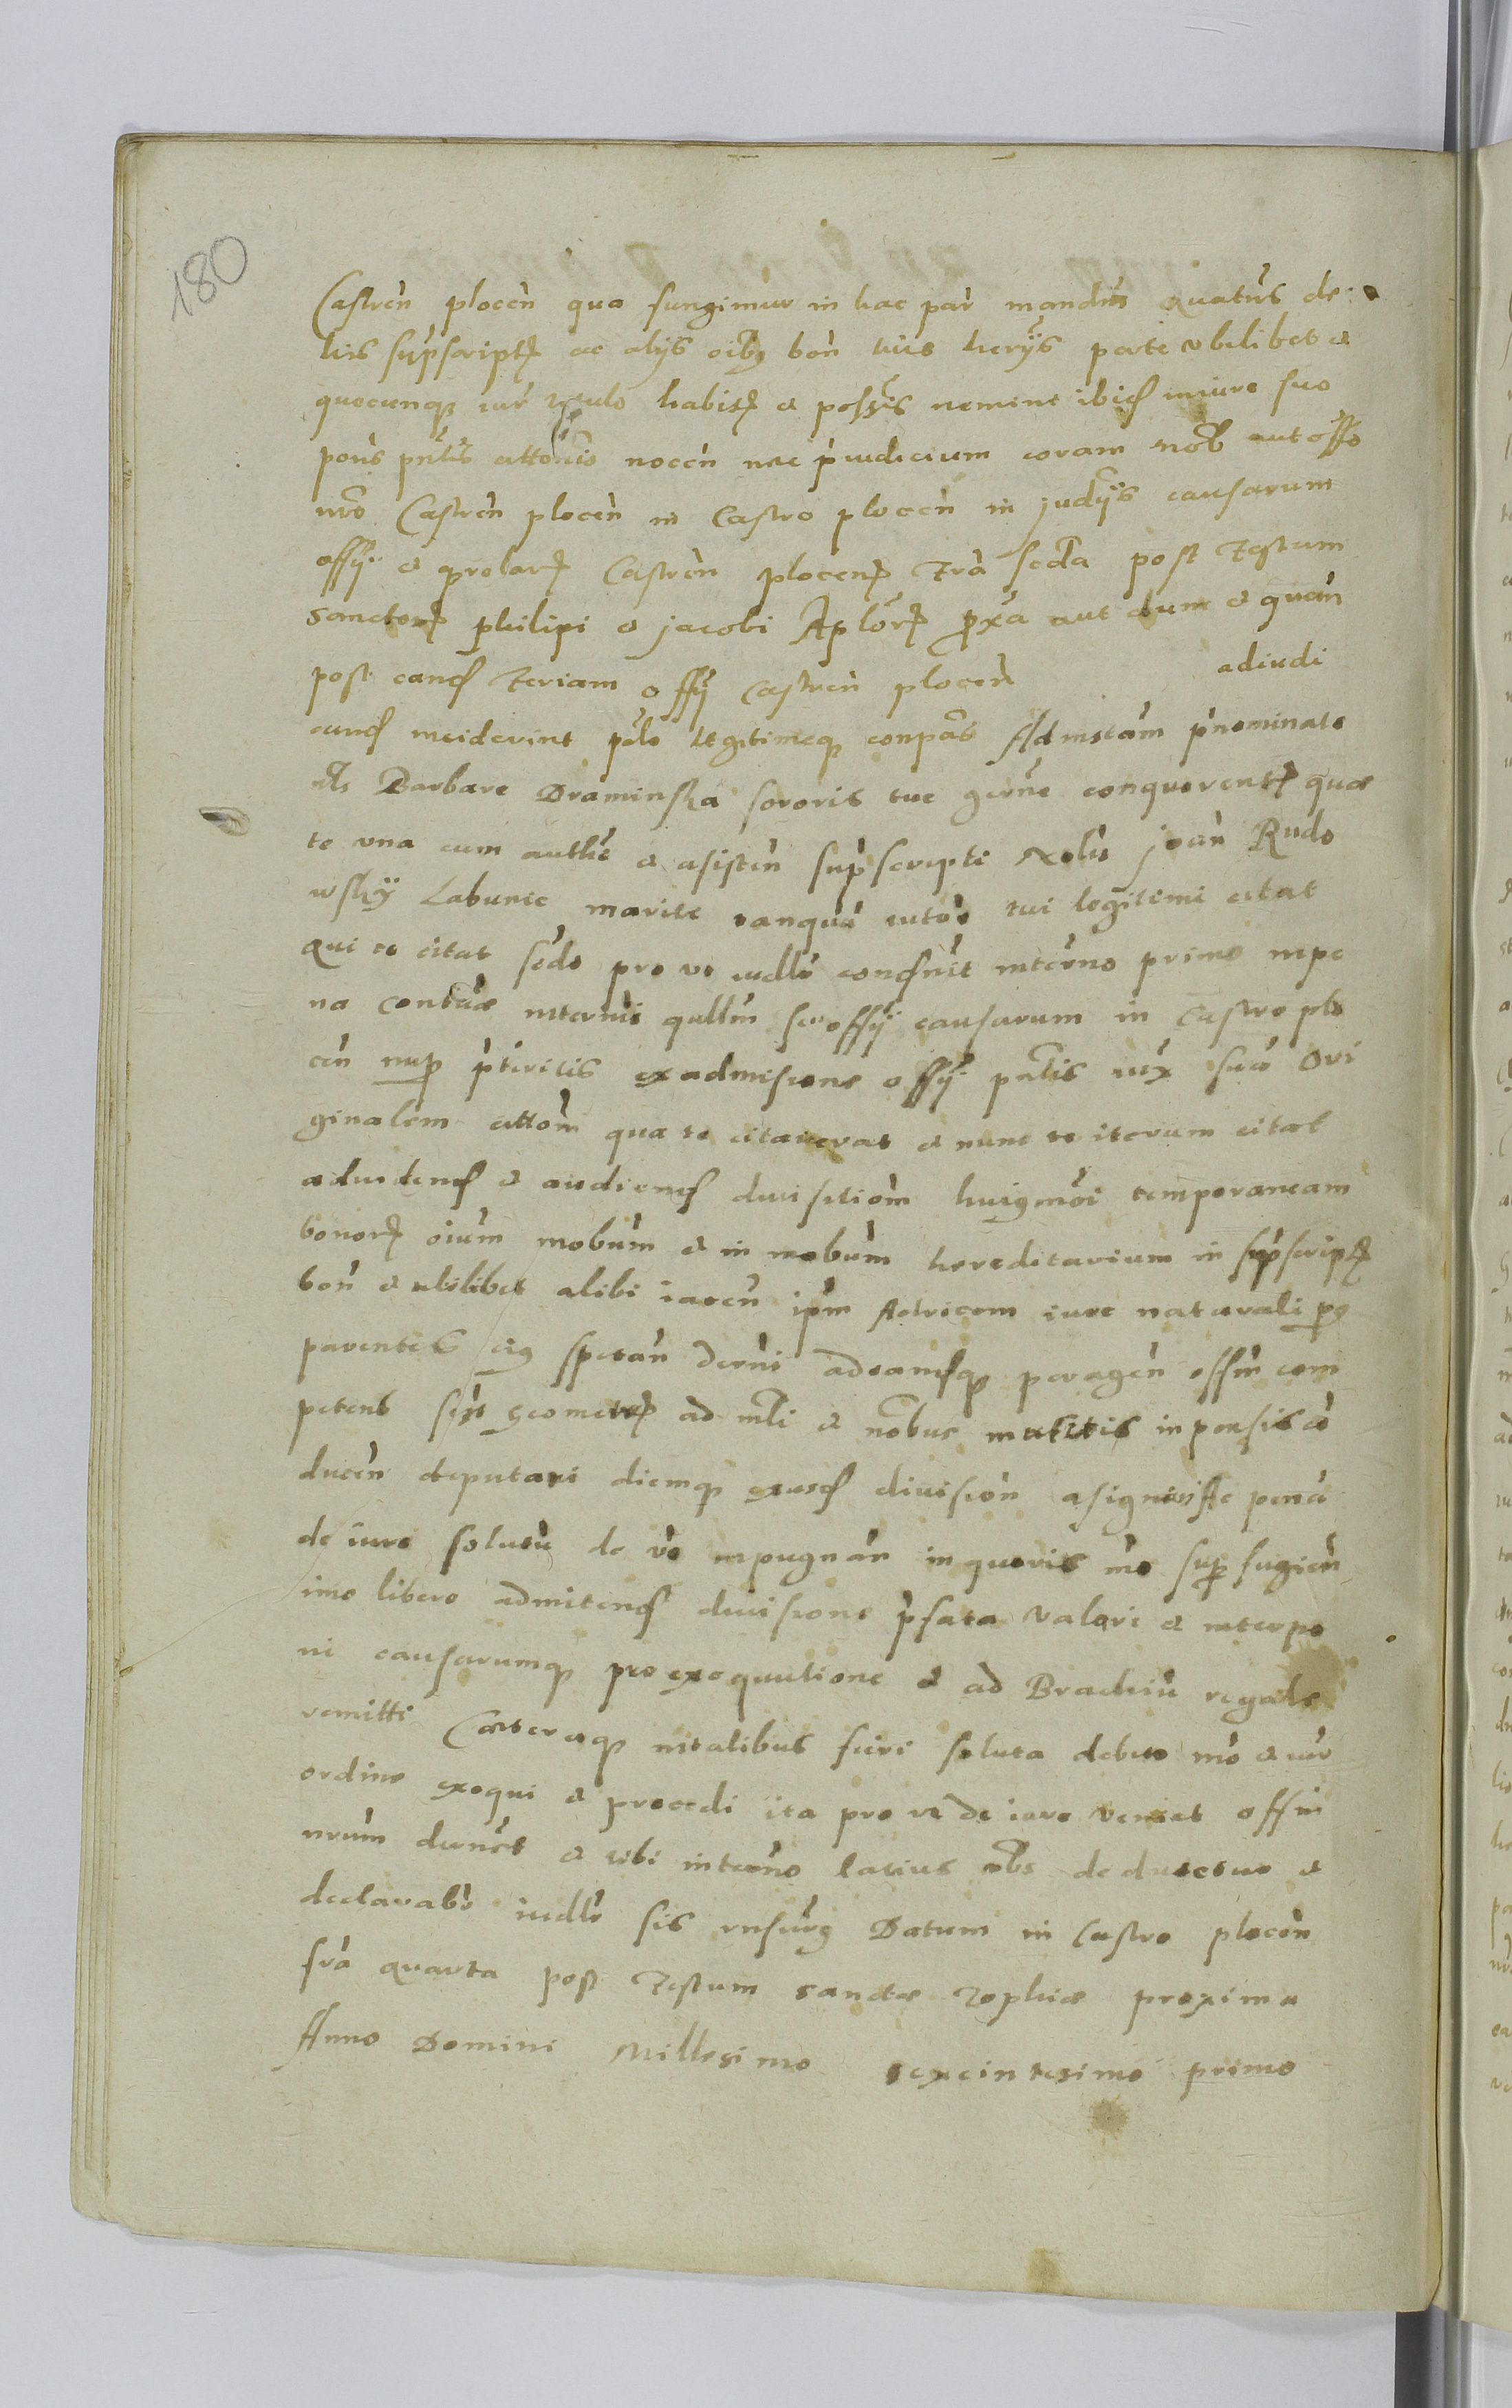 180
Castren plocen qua fungimur in hac par mandm̃ Quatus de
his supscriptꝝ ac alijs oibꝫ bon tuis herijs parte vbilibet et
quocunqꝫ iur titulo habitꝝ et possis nemine ibid iniure suo
pons pntis attonis nocen nec piudicium coram nob aut offo
nro Castren plocen in Castro plocen in judijs causarum
offij et qrelarꝝ Castren plocenꝝ fra scda post festum
sanctorꝝ philipi et jacobi Aplorꝝ pxa aut dum et quan
post eand feriam offij Castren plocen adiudi
cand inciderint pslr legitimeqꝫ conpas Ad instam pnominate
Barbare Draminska sororis tue germe conquerentꝝ quae
te una cum auth et asisten supscripti Nobis joan Rudo
wskÿ Labunie mariti tanqua tutore tui legitimi citat
qui te citat sedo pro ut iudlr condnit interno primo inpe
na contuae internis qullm seu offij causarum in Castro plo
cen nup pteritis ex admisione offij pntis iux sua Ori
ginalem cittom qua te citauerat et nunc te iterum citat
aduidend et audiend diuisitiom huigmoi temporaneam
bonorꝝ oium mobum et in mobum hereditarium in supscriptꝝ
bon et ubilibet alibi iacen ipm Actricem iure naturali po
parentes eig spetan derni adeamdqꝫ peragen offm com
petens sist geometrꝝ ad mli et nobus inutitis inpensis ad
ducen deputari diemqꝫ eiusd diuision asignasse pena
de iure soluen de ut inpugnan in queris mo sup fugien
imo libere admitend diuisione pfata valori et interpo
ni causarumqꝫ pro exequutione et ad Brachiu regale
remitti Caeteraqꝫ nitalibus fieri soluta debito mo et iur
ordine exequi et procedi ita pro ut de iure veniet offm
nrum dernet et tibi interno latius obs deducetur et
declarabr iudlr sis rnsurg Datum in Castro plocen
fra quarta post festum sanctae zophiae proxima
Anno Domini Millesimo sexcintesimo primo